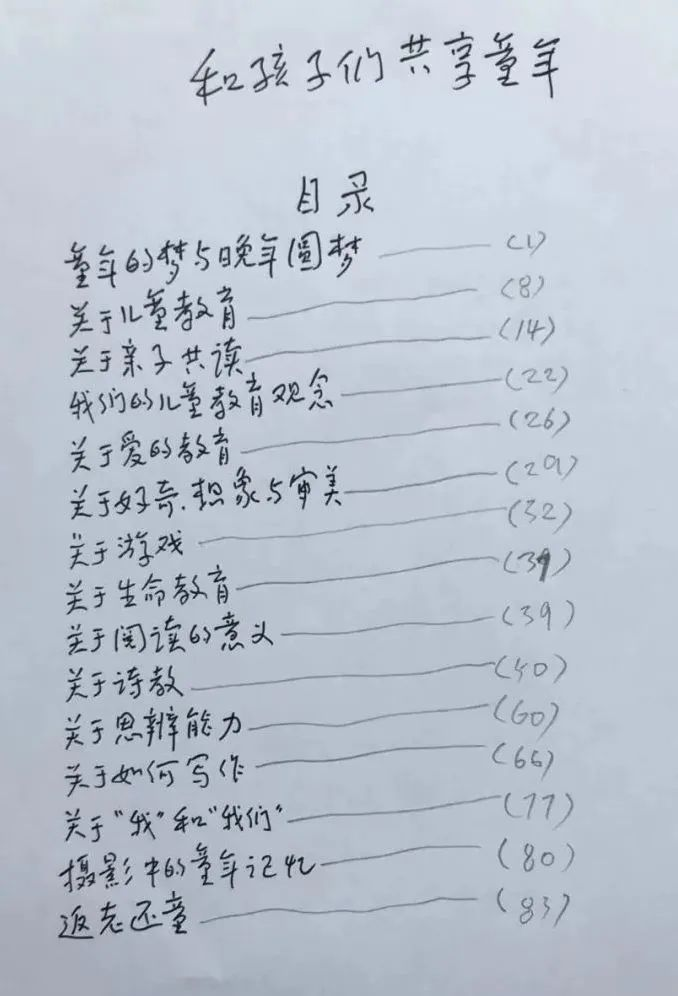 和孩子们共享童年
目录
童年的梦与晚年圆梦 (1)
关于儿童教育 (8)
关于亲子共读 (14)
我们的儿童教育观念 (22)
关于爱的教育 (26)
关于好奇、想象与审美 (29)
关于游戏 (32)
关于生命教育
关于阅读的意义 (39)
关于诗教 (40)
关于思辨能力 (60)
关于如何写作 (66)
关于“我”和“我们” (77)
摄影中的童年记忆 (80)
返老还童 (83)